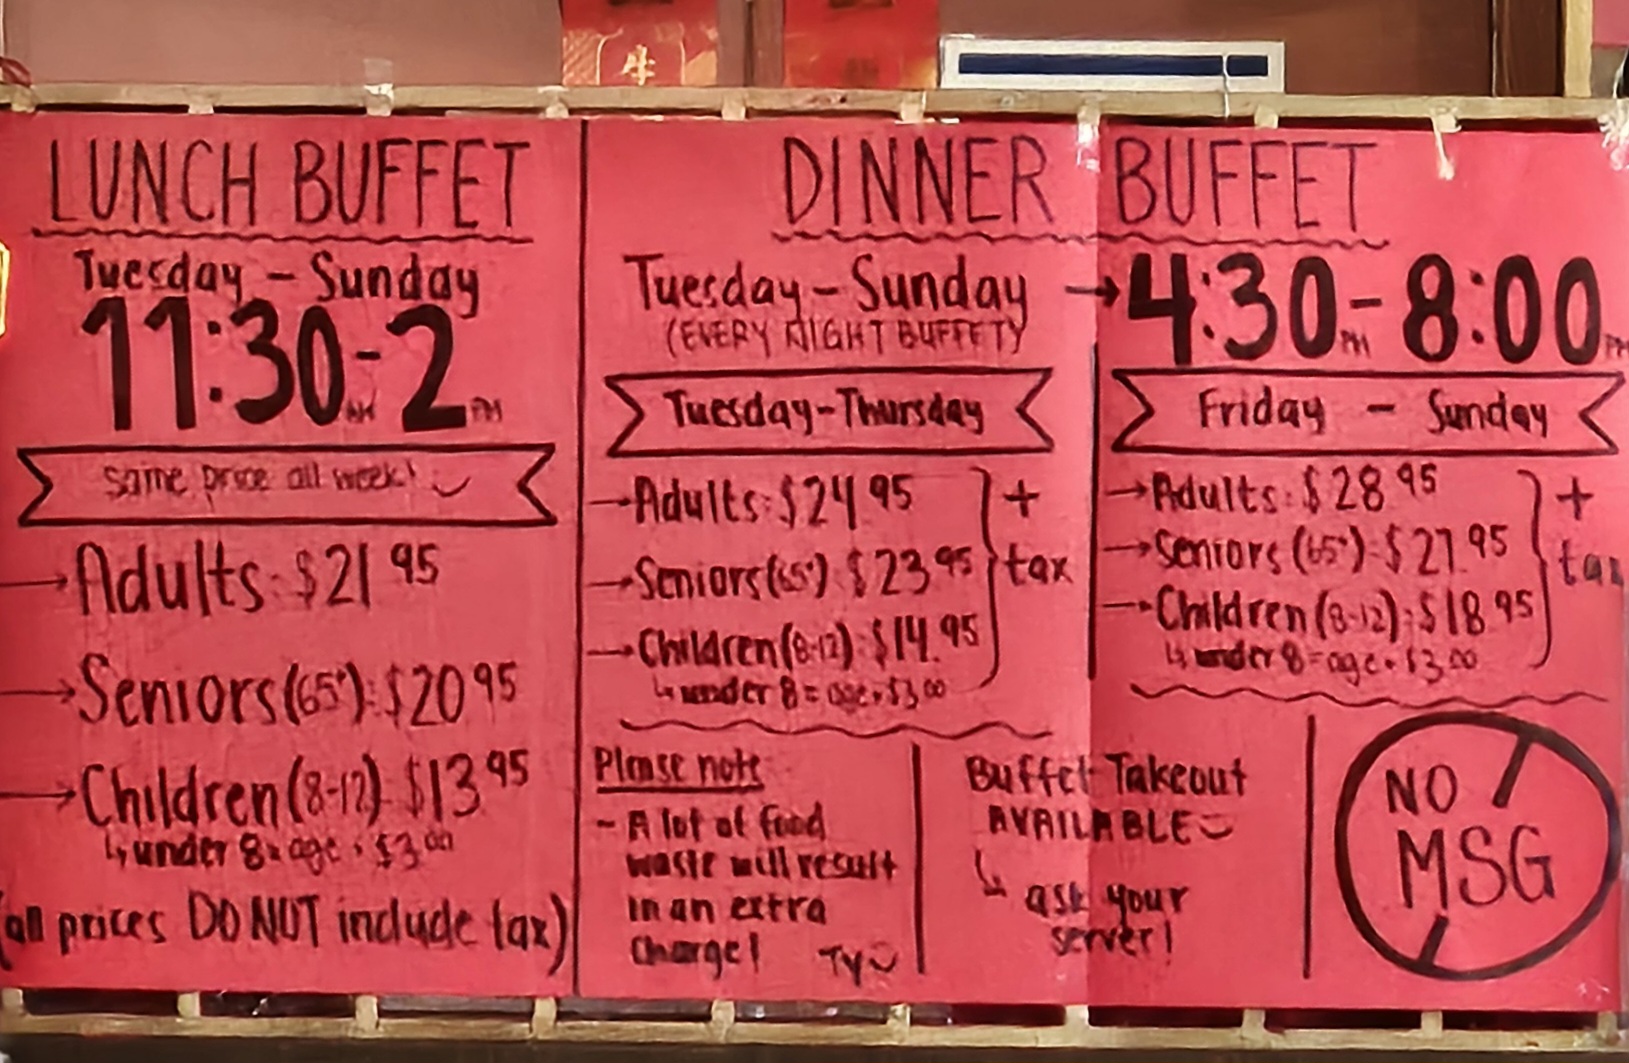 牛
LUNCH BUFFET
Tuesday - Sunday
11:30AM - 2PM
same price all week!
→ Adults: $21.95
→ Seniors (65+): $20.95
→ Children (8-12): $13.95
↳ under 8 = age × $3.00
(all prices DO NOT include tax)
DINNER BUFFET
Tuesday - Sunday → 4:30PM - 8:00PM
(EVERY NIGHT BUFFETY
Tuesday - Thursday
→ Adults: $24.95
→ Seniors (65+): $23.95
→ Children (8-12): $14.95
↳ under 8 = age × $3.00
+
tax
Friday - Sunday
→ Adults: $28.95
→ Seniors (65+): $27.95
→ Children (8-12): $18.95
↳ under 8 = age × $3.00
+
tax
Please note
- A lot of food
waste will result
in an extra
charge!
TY
Buffet Takeout
AVAILABLE
↳ ask your
server!
NO
MSG